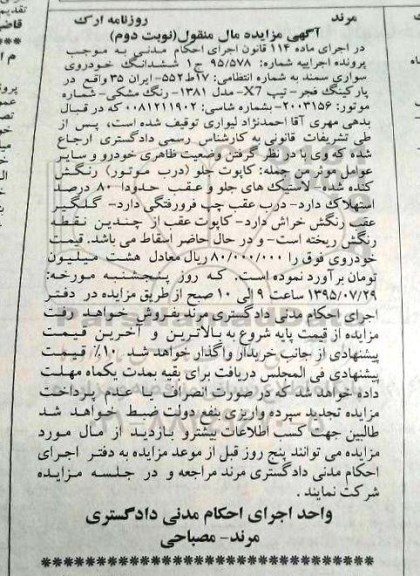 مرند
روزنامه ارک
آگهی مزایده مال منقول(نوبت دوم)
در اجرای ماده ۱۱۴ قانون اجرای احکام مدنی به موجب
پرونده اجراییه شماره: ۹۵/۵۷۸ ج۱ ششدانگ خودروی
سواری سمند به شماره انتظامی: ۱۷ط۵۵۲- ایران ۳۵ واقع در
پارکینگ فجر- تیپ X7- مدل ۱۳۸۱- رنگ مشکی- شماره
موتور: ۲۰۰۳۱۵۶- شماره شاسی: ۰۰۸۱۲۱۱۹۰۲ که در قبال
بدهی مهری آقا احمدنژاد لیواری توقیف شده است، پس از
طی تشریفات قانونی به کارشناس رسمی دادگستری ارجاع
شده که وی با در نظر گرفتن وضعیت ظاهری خودرو و سایر
عوامل موثر من جمله: کاپوت جلو (درب موتور) رنگش
کنده شده- لاستیک های جلو و عقب حدودا ۸۰ درصد
استهلاک دارد- درب عقب چپ فرورفتگی دارد- گلگیر
عقب رنگش خراش دارد- کاپوت عقب از چندین نقطه
رنگش ریخته است- و در حال حاضر اسقاط می باشد. قیمت
خودروی فوق را ۸۰/۰۰۰/۰۰۰ ریال معادل هشت میلیون
تومان برآورد نموده است. که روز پنجشنبه مورخه:
۱۳۹۵/۰۷/۲۹ ساعت ۹ الی ۱۰ صبح از طریق مزایده در دفتر
اجرای احکام مدنی دادگستری مرند بفروش خواهد رفت
مزایده از قیمت پایه شروع به بالاترین و آخرین قیمت
پیشنهادی از جانب خریدار واگذار خواهد شد ۱۰٪ قیمت
پیشنهادی فی المجلس دریافت برای بقیه بمدت یکماه مهلت
داده خواهد شد که در صورت انصراف یا عدم پرداخت
مزایده تجدید سپرده واریزی بنفع دولت ضبط خواهد شد
طالبین جهت کسب اطلاعات بیشترو بازدید از مال مورد
مزایده می توانند پنج روز قبل از موعد مزایده به دفتر اجرای
احکام مدنی دادگستری مرند مراجعه و در جلسه مزایده
شرکت نمایند.
واحد اجرای احکام مدنی دادگستری
مرند- مصباحی